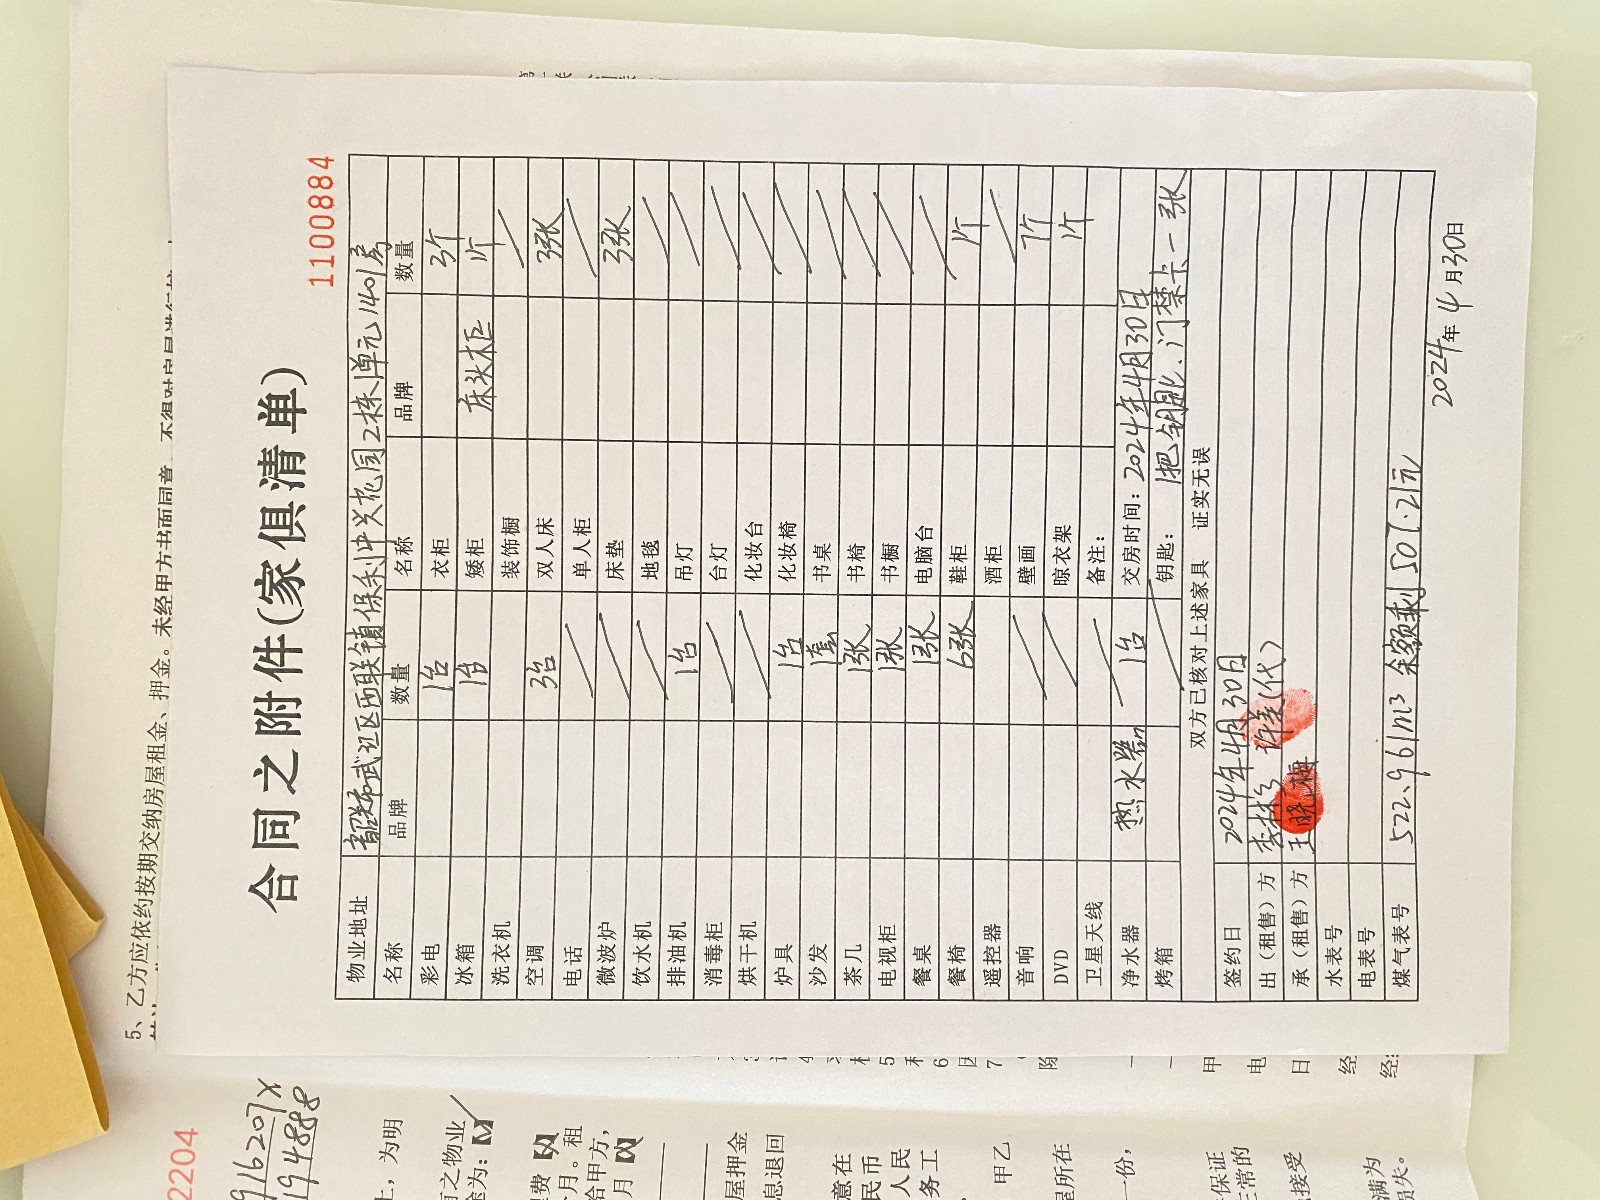 合同之附件(家俱清单)
1100884
物业地址 韶关市武江区西联镇保利中央花园2栋1单元1401房
名称 品牌 数量 名称 品牌 数量
彩电 1台 衣柜 3个
冰箱 1台 矮柜 床头柜 1个
洗衣机 装饰橱
空调 3台 双人床 3张
电话 单人柜
微波炉 床垫 3张
饮水机 地毯
排油机 1台 吊灯
消毒柜 台灯
烘干机 化妆台
炉具 1台 化妆椅
沙发 1套 书桌
茶几 1张 书椅
电视柜 1张 书橱
餐桌 1张 电脑台
餐椅 6张 鞋柜 1个
遥控器 酒柜
音响 壁画 7个
DVD 晾衣架 1个
卫星天线 备注:
净水器 热水器 1台 交房时间: 2024年4月30日
烤箱 钥匙: 1把钥匙、门禁卡一张
双方已核对上述家具 证实无误
签约日 2024年4月30日
出（租售）方 (代)
承（租售）方 王晓梅
水表号
电表号
煤气表号 522.961m³ 余额剩507.21元
2024年4月30日
5、乙方应依约按期交纳房屋租金、押金。未经甲方书面同意
2204
916207X
194888
上，为明
有之物业
途为:
费
月。租
给甲方，
月
屋押金
息退回
意在
民币
人民
务工
甲乙
屋所在
一份，
保证
正常的
接受
满为
损失。